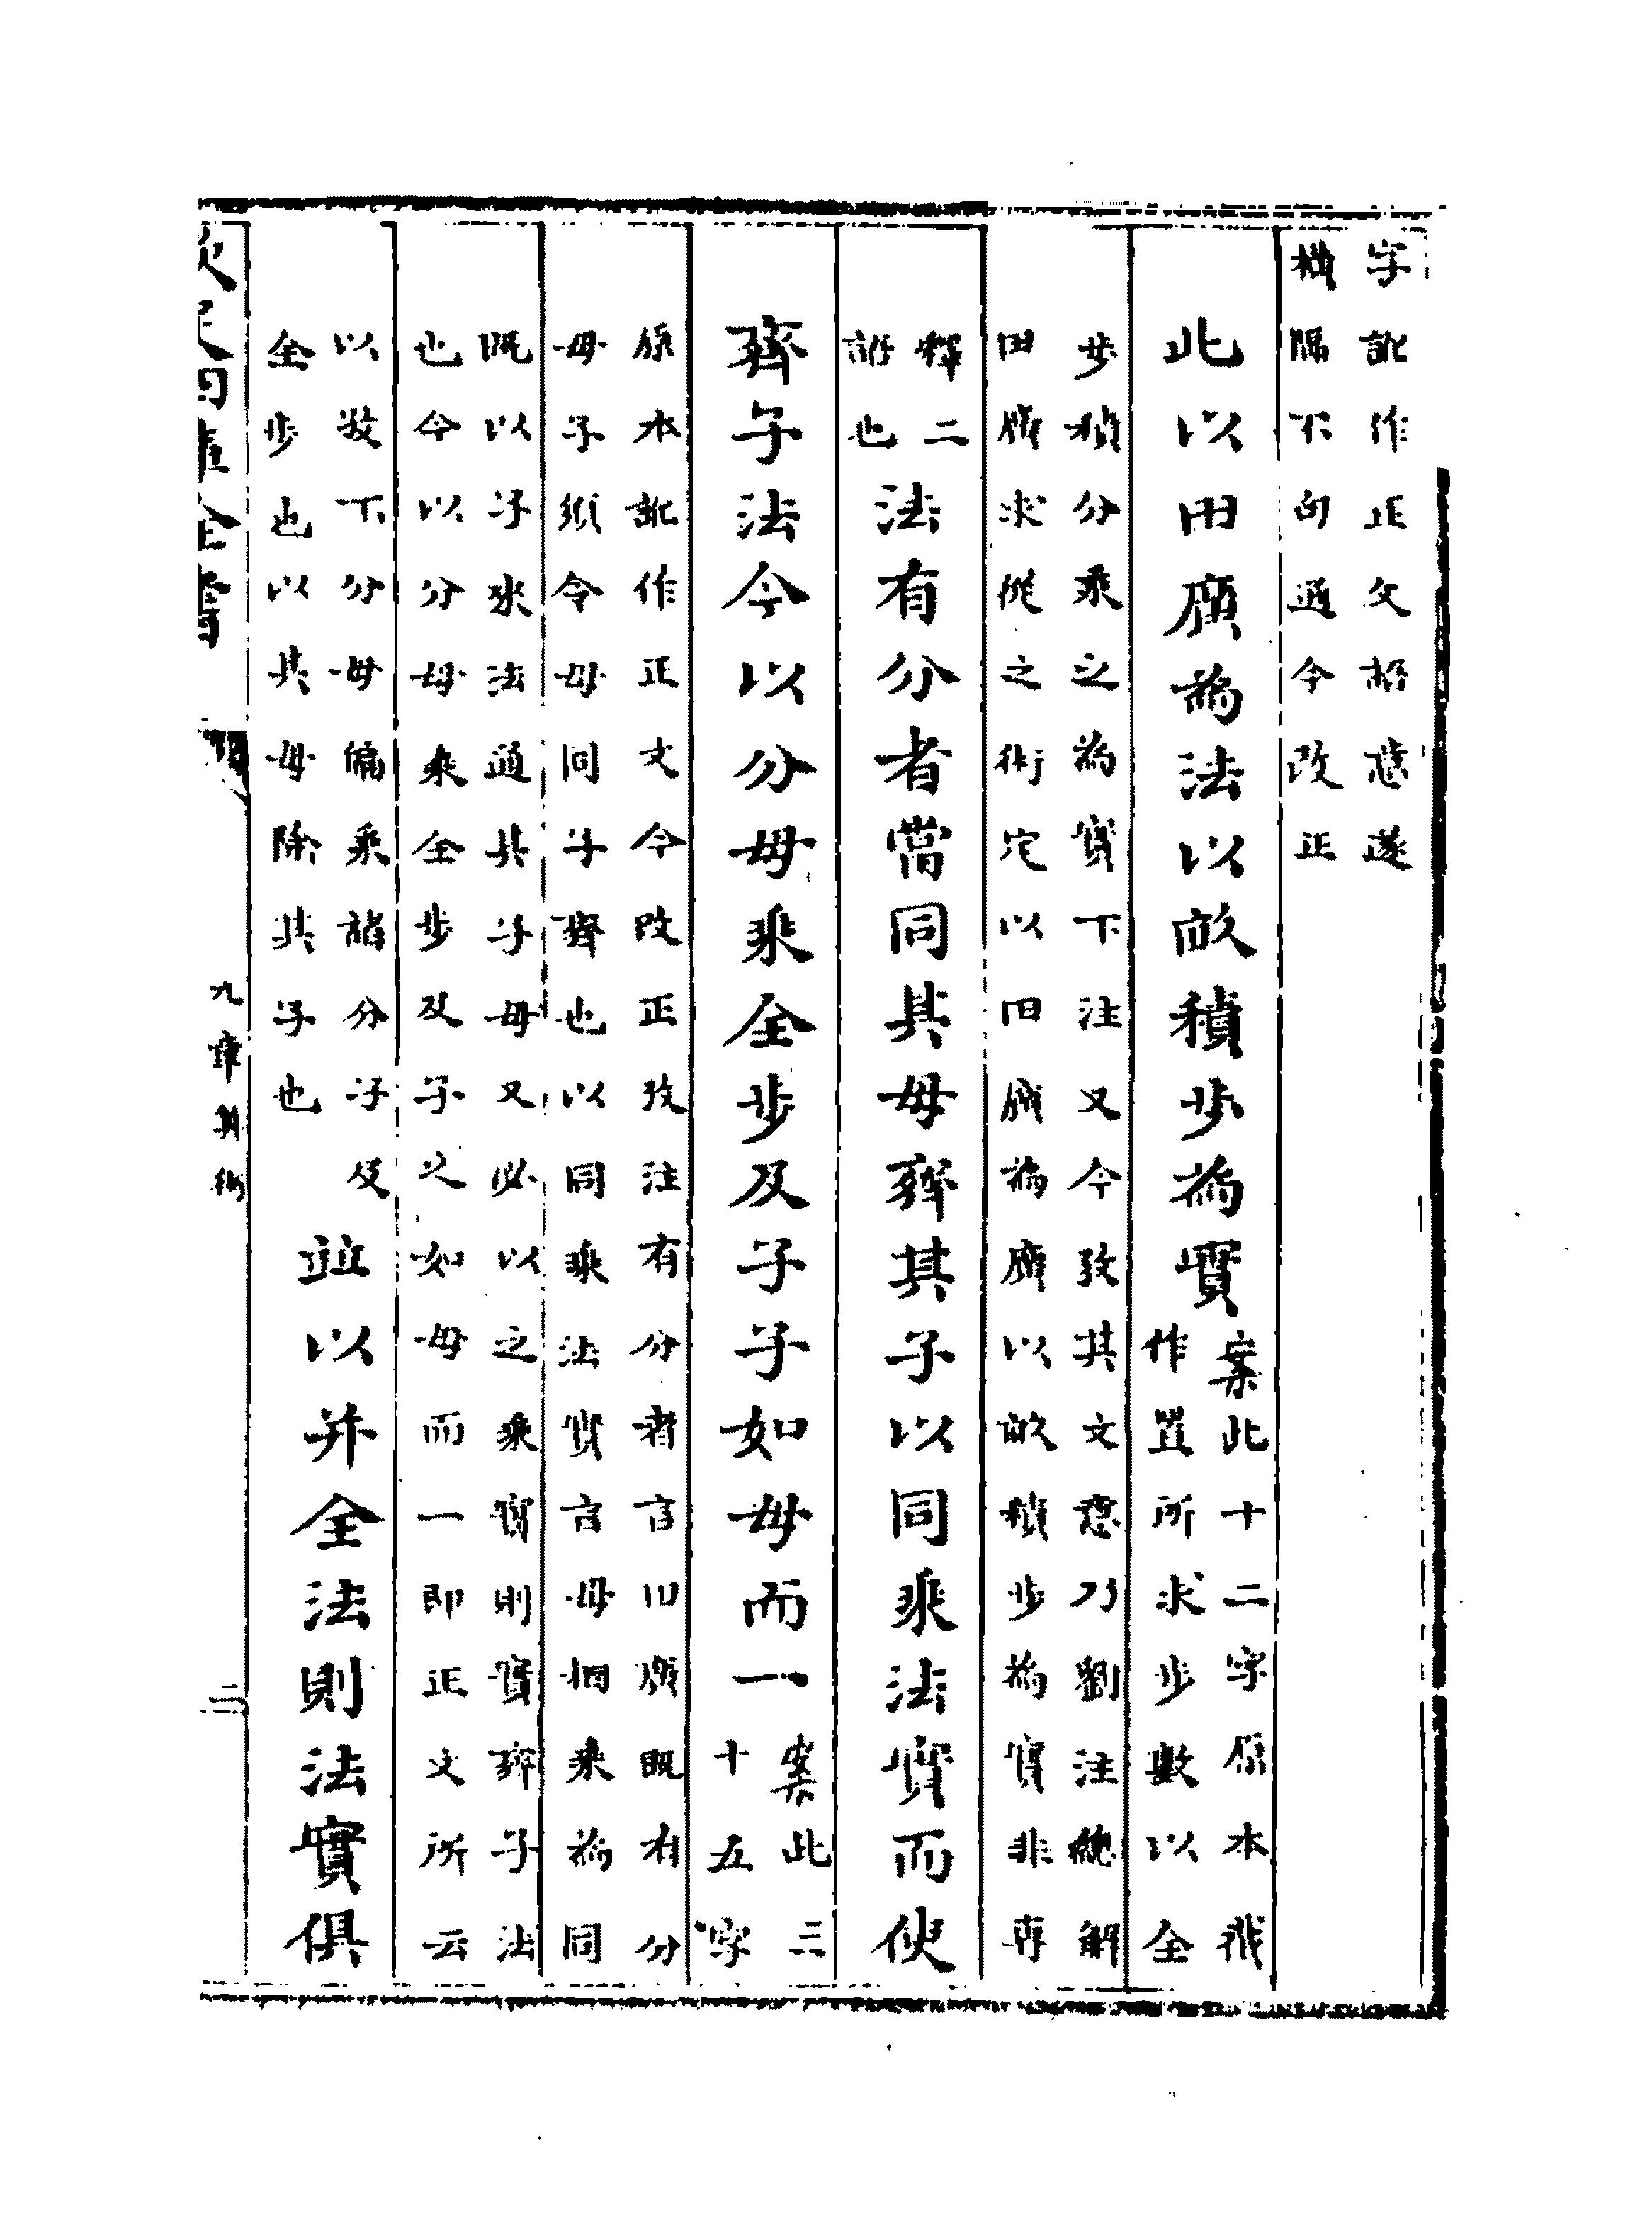 字訛作正文意遂
橫隔下句通今改正
此以田廣為法以畝積步為實
案此十二字原本或
作置所求步數以全
步積分乘之為實下注又今攷其文意乃劉注總解
田廣求從之術定以田廣為廣以畝積步為實非專
釋二
語也
法有分者當同其母齊其子以同乘法實而使
齊子法今以分母乘全步及子子如母而一
案此三
十五字
原本訛作正文今改正攷注有分者言田廣既有分
母子須令母同子齊也以同乘法實言母相乘為同
既以子乘法通其子母又必以之乘實則實齊子法
也今以分母乘全步及子之如母而一即正文所云
以最下分母偏乘諸分子及
全步也以其母除其子也
並以并全法則法實俱
欽定四庫全書
九章算術